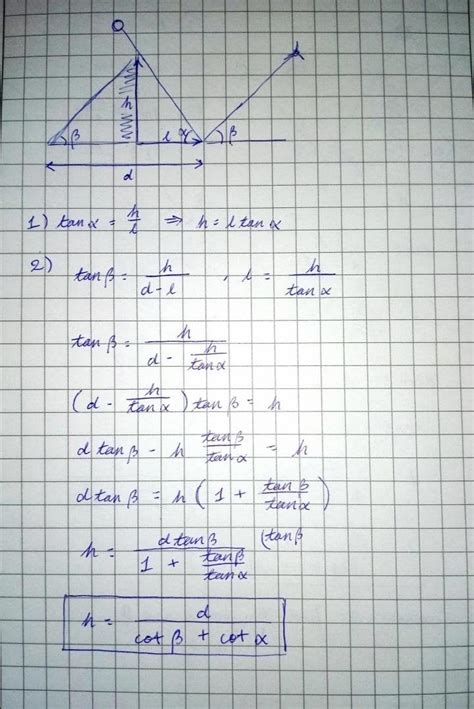 h
β
l
α
β
d
1) tanα = h/l ⇒ h = l tanα
2) tanβ = h/(d-l) , l = h/tanα
tanβ = h/(d - h/tanα)
(d - h/tanα) tanβ = h
d tanβ - h tanβ/tanα = h
d tanβ = h (1 + tanβ/tanα)
h = d tanβ/(1 + tanβ/tanα) (tanβ
h = d/(cot β + cot α)